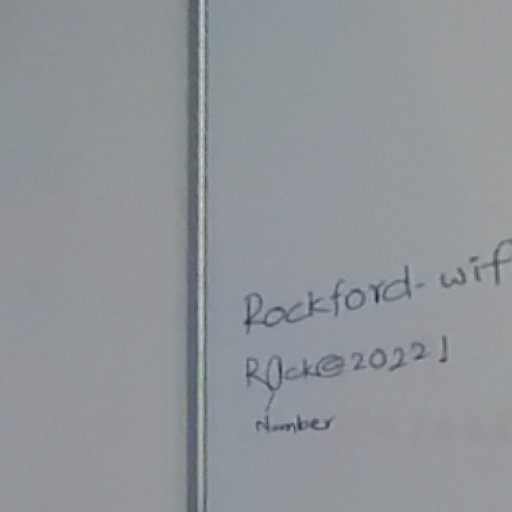 Rockford-wif
R0ck@2022!
Number